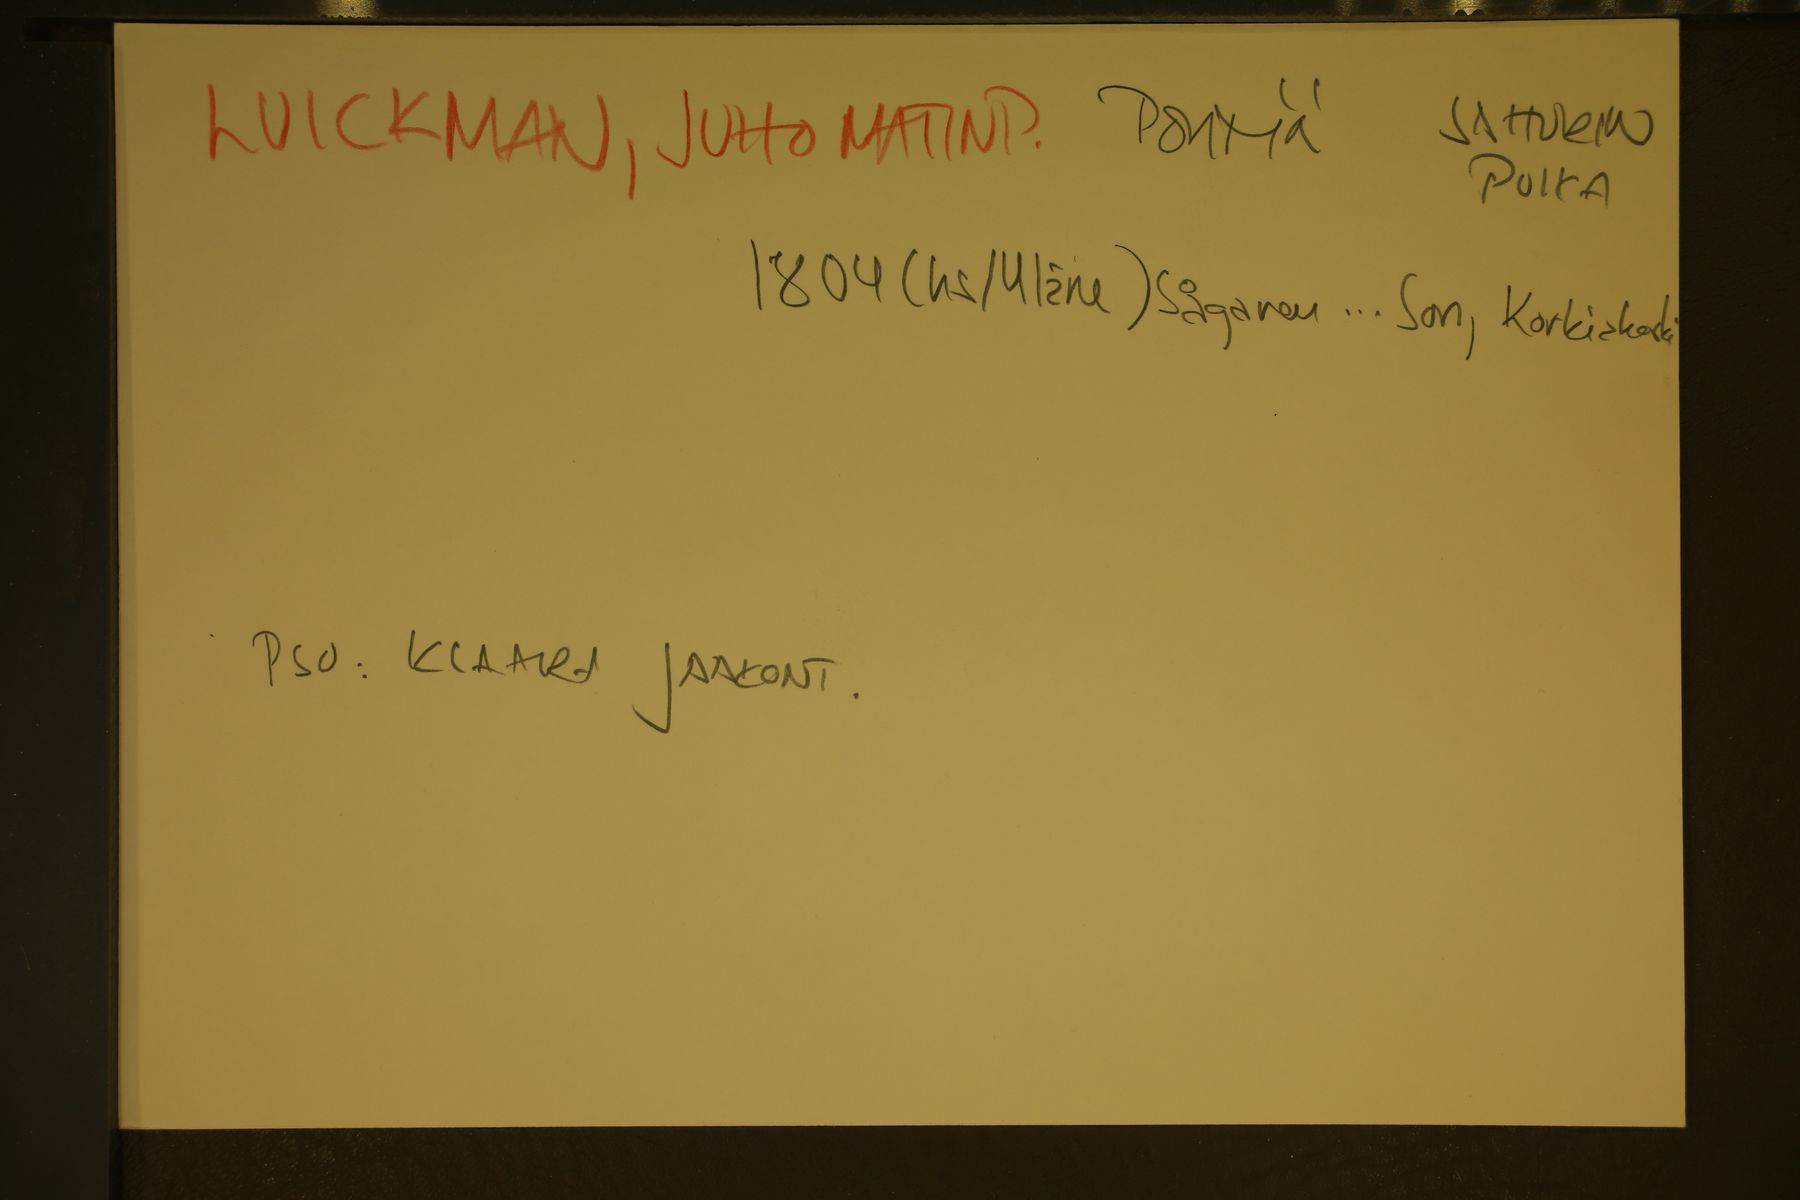 LUICKMAN, JUHO MATINP. POHJA SAHURIN
POIKA
1804 (hs/Uläne) Sågaren ... Son, Korkiakoski
PSO: KLAARA JAAKONT.